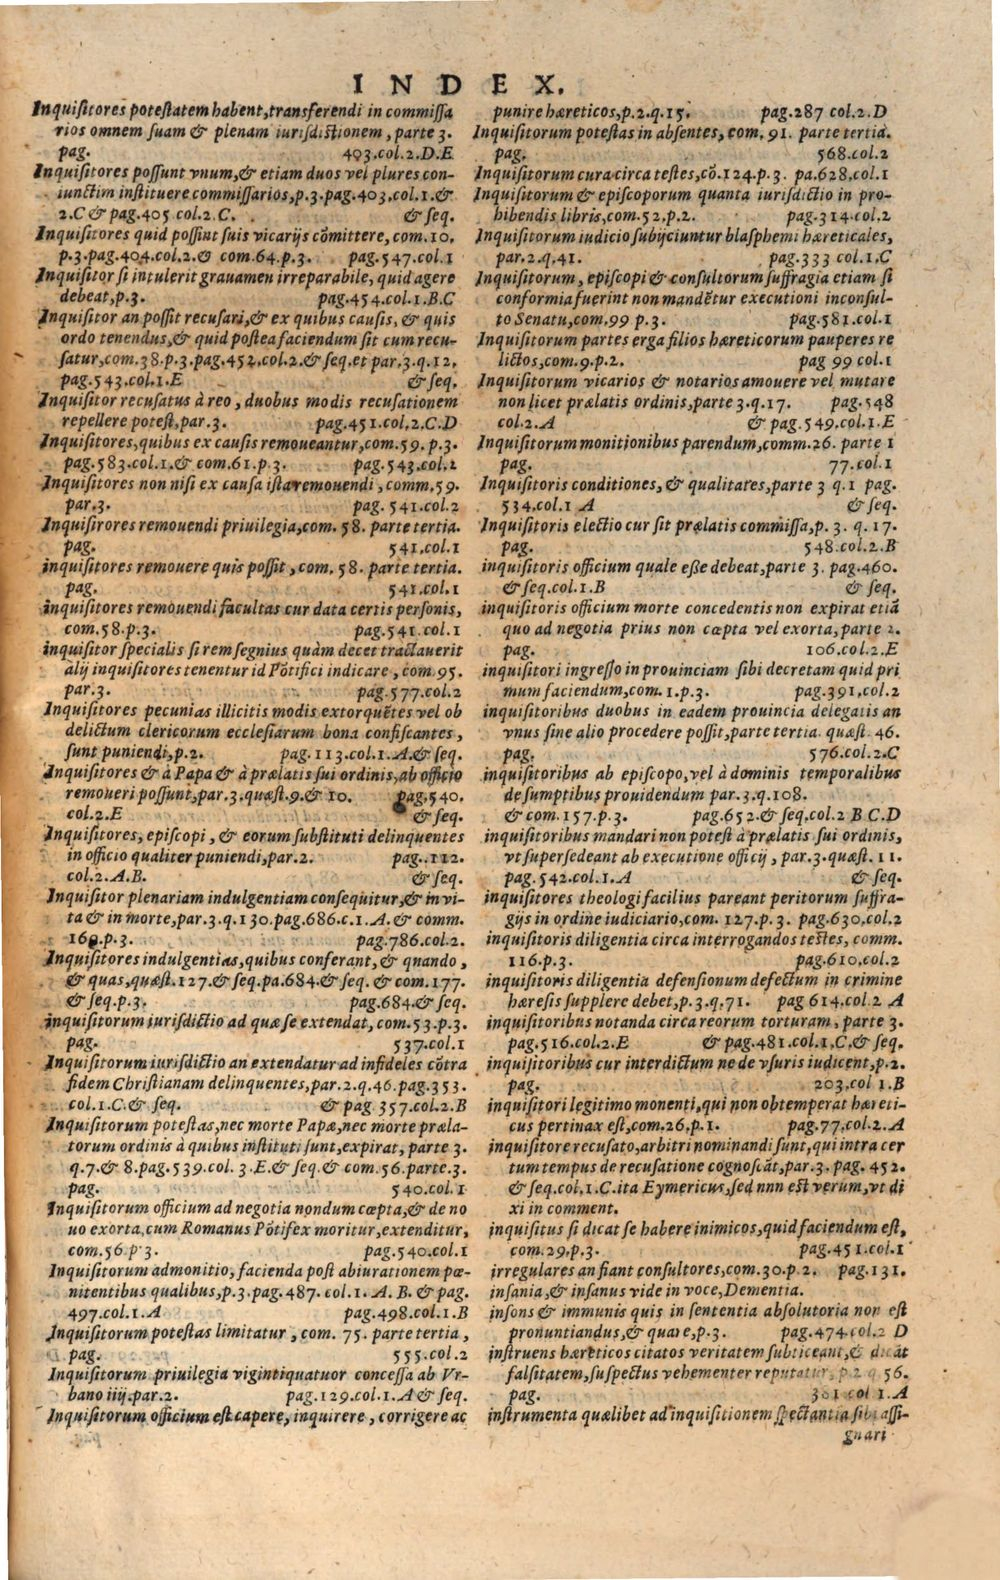 INDEX.
Inquisitores potestatem habent, transferendi in commissa
rios omnem suam & plenam iurisdictionem, parte 3.
pag. 403.col.2.D.E
Inquisitores possunt vnum, & etiam duos vel plures con-
iunctim instituere commissarios, p.3.pag.403.col.1.&
2.C & pag.405 col.2.C. & seq.
Inquisitores quid possint suis vicarijs cōmittere, com.10.
p.3.pag.404.col.2.& com.64.p.3. pag.547.col.1
Inquisitor si intulerit grauamen irreparabile, quid agere
debeat, p.3. pag.454.col.1.B.C
Inquisitor an possit recusari, & ex quibus causis, & quis
ordo tenendus, & quid postea faciendum sit cum recu-
satur, com.38.p.3.pag.452.col.2.& seq.et par.3.q.12.
pag.543.col.1.E & seq.
Inquisitor recusatus à reo, duobus modis recusationem
repellere potest, par.3. pag.451.col.2.C.D
Inquisitores, quibus ex causis remoueantur, com.59.p.3.
pag.583.col.1.& com.61.p.3. pag.543.col.2
Inquisitores non nisi ex causa ista remouendi, comm.59.
par.3. pag. 541.col.2
Inquisirores remouendi priuilegia, com. 58. parte tertia.
pag. 541.col.1
inquisitores remouere quis possit, com. 58. parte tertia.
pag. 541.col.1
inquisitores remouendi facultas cur data certis personis,
com.58.p.3. pag.541.col.1
inquisitor specialis si rem segnius quàm decet tractauerit
alij inquisitores tenentur id Pōtifici indicare, com 95.
par.3. pag.577.col.2
Inquisitores pecunias illicitis modis extorquētes vel ob
delictum clericorum ecclesiarum bona confiscantes,
sunt puniendi, p.2. pag.113.col.1.A.& seq.
Inquisitores & à Papa & à prælatis sui ordinis, ab officio
remoueri possunt, par.3.quæst.9.& 10. pag.540.
col.2.E & seq.
Inquisitores, episcopi, & eorum substituti delinquentes
in officio qualiter puniendi, par.2. pag..112.
col.2.A.B. & seq.
Inquisitor plenariam indulgentiam consequitur, & in vi-
ta & in morte, par.3.q.130.pag.686.c.1.A.& comm.
169.p.3. pag.786.col.2.
Inquisitores indulgentias, quibus conferant, & quando,
& quas, quæst.127.& seq.pa.684.& seq. & com.177.
& seq.p.3. pag.684.& seq.
inquisitorum iurisdictio ad quæ se extendat, com.53.p.3.
pag. 537.col.1
Inquisitorum iurisdictio an extendatur ad infideles cōtra
fidem Christianam delinquentes, par.2.q.46.pag.353.
col.1.C.& seq. & pag 357.col.2.B
Inquisitorum potestas, nec morte Papæ, nec morte præla-
torum ordinis à quibus instituti sunt, expirat, parte 3.
q.7.& 8.pag.539.col. 3.E.& seq.& com.56.parte.3.
pag. 540.col.1
Inquisitorum officium ad negotia nondum cœpta, & de no
uo exorta, cum Romanus Pōtifex moritur, extenditur,
com.56 p 3. pag.540.col.1
Inquisitorum admonitio, facienda post abiurationem pœ-
nitentibus qualibus, p.3.pag.487. col.1. A. B. & pag.
497.col.1.A pag.498.col.1.B
Inquisitorum potestas limitatur, com. 75. parte tertia,
pag. 555.col.2
Inquisitorum priuilegia vigintiquatuor concessa ab Vr-
bano iiij.par.2. pag.129.col.1.A & seq.
Inquisitorum officium est capere, inquirere, corrigere ac
punire hæreticos, p.2.q.15. pag.287 col.2.D
Inquisitorum potestas in absentes, com. 91. parte tertia.
pag. 568.col.2
Inquisitorum cura circa testes, cō.124.p.3. pa.628,col.1
Inquisitorum & episcoporum quanta iurisdictio in pro-
hibendis libris, com.52.p.2. pag.314.col.2
Inquisitorum iudicio subijciuntur blasphemi hæreticales,
par.2.q.41. pag.333 col.1.C
Inquisitorum, episcopi & consultorum suffragia etiam si
conformia fuerint non mandētur executioni inconsul-
to Senatu, com.99 p.3. pag.581.col.1
Inquisitorum partes erga filios hæreticorum pauperes re
lictos, com.9.p.2. pag 99 col.1
Inquisitorum vicarios & notarios amouere vel mutare
non licet prælatis ordinis, parte 3.q.17. pag.548
col.2.A & pag.549.col.1.E
Inquisitorum monitionibus parendum, comm.26. parte 1
pag. 77.col.1
Inquisitoris conditiones, & qualitates, parte 3 q.1 pag.
534.col.1 A & seq.
Inquisitoris electio cur sit prælatis commissa, p. 3. q. 17.
pag. 548.col.2.B
inquisitoris officium quale esse debeat, parte 3. pag.460.
& seq.col.1.B & seq.
inquisitoris officium morte concedentis non expirat etiā
quo ad negotia prius non cœpta vel exorta, parte 2.
pag. 106.col.2.E
inquisitori ingresso in prouinciam sibi decretam quid pri
mum faciendum, com.1.p.3. pag.391.col.2
inquisitoribus duobus in eadem prouincia delegatis an
vnus sine alio procedere possit, parte tertia. quæst. 46.
pag. 576.col.2.C
inquisitoribus ab episcopo, vel à dominis temporalibus
de sumptibus prouidendum par.3.q.108.
& com.157.p.3. pag.652.& seq.col.2 B C.D
inquisitoribus mandari non potest à prælatis sui ordinis,
vt supersedeant ab executione officij, par.3.quæst. 11.
pag.542.col.1.A & seq.
inquisitores theologi facilius pareant peritorum suffra-
gijs in ordine iudiciario, com. 127.p.3. pag.630,col.2
inquisitoris diligentia circa interrogandos testes, comm.
116.p.3. pag.610.col.2
inquisitoris diligentia defensionum defectum in crimine
hæresis supplere debet, p.3.q.71. pag 614.col.2 A
inquisitoribus notanda circa reorum torturam, parte 3.
pag.516.col.2.E & pag.481.col.1.C.& seq.
inquisitoribus cur interdictum ne de vsuris iudicent, p.2.
pag. 203.col 1.B
inquisitori legitimo monenti, qui non obtemperat hæreti-
cus pertinax est, com.26.p.1. pag.77.col.2.A
inquisitore recusato, arbitri nominandi sunt, qui intra cer
tum tempus de recusatione cognoscāt, par.3. pag. 452.
& seq.col.1.C.ita Eymericus, sed nnn est verum, vt di
xi in comment.
inquisitus si dicat se habere inimicos, quid faciendum est,
com.29.p.3. pag.451.col.1
irregulares an fiant consultores, com.30.p.2. pag.131.
insania, & insanus vide in voce, Dementia.
insons & immunis quis in sententia absolutoria non est
pronuntiandus, & quare, p.3. pag.474.col.2 D
instruens hæreticos citatos veritatem subticeant, & dicāt
falsitatem, suspectus vehementer reputatur, p.2 q. 56.
pag. 301 col 1.A
instrumenta quælibet ad inquisitionem spectantia sibi assi-
gnari